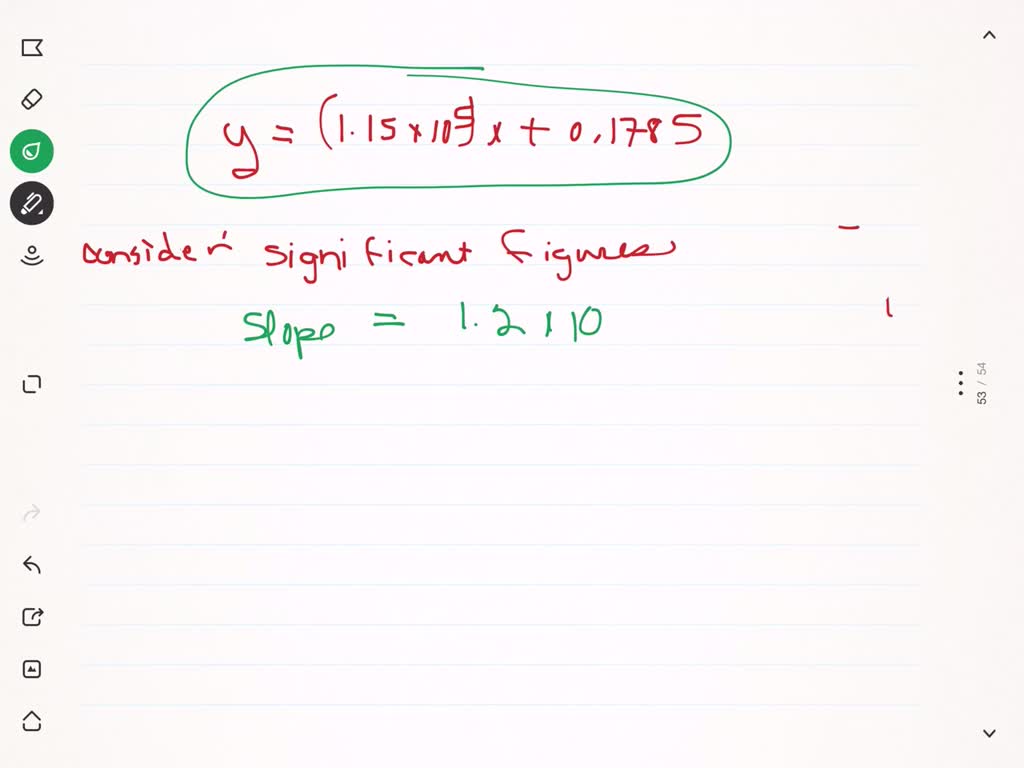 y = (1.15 × 10⁵) x + 0.1785
consider significant figures
Slope = 1.2 × 10
53 / 54